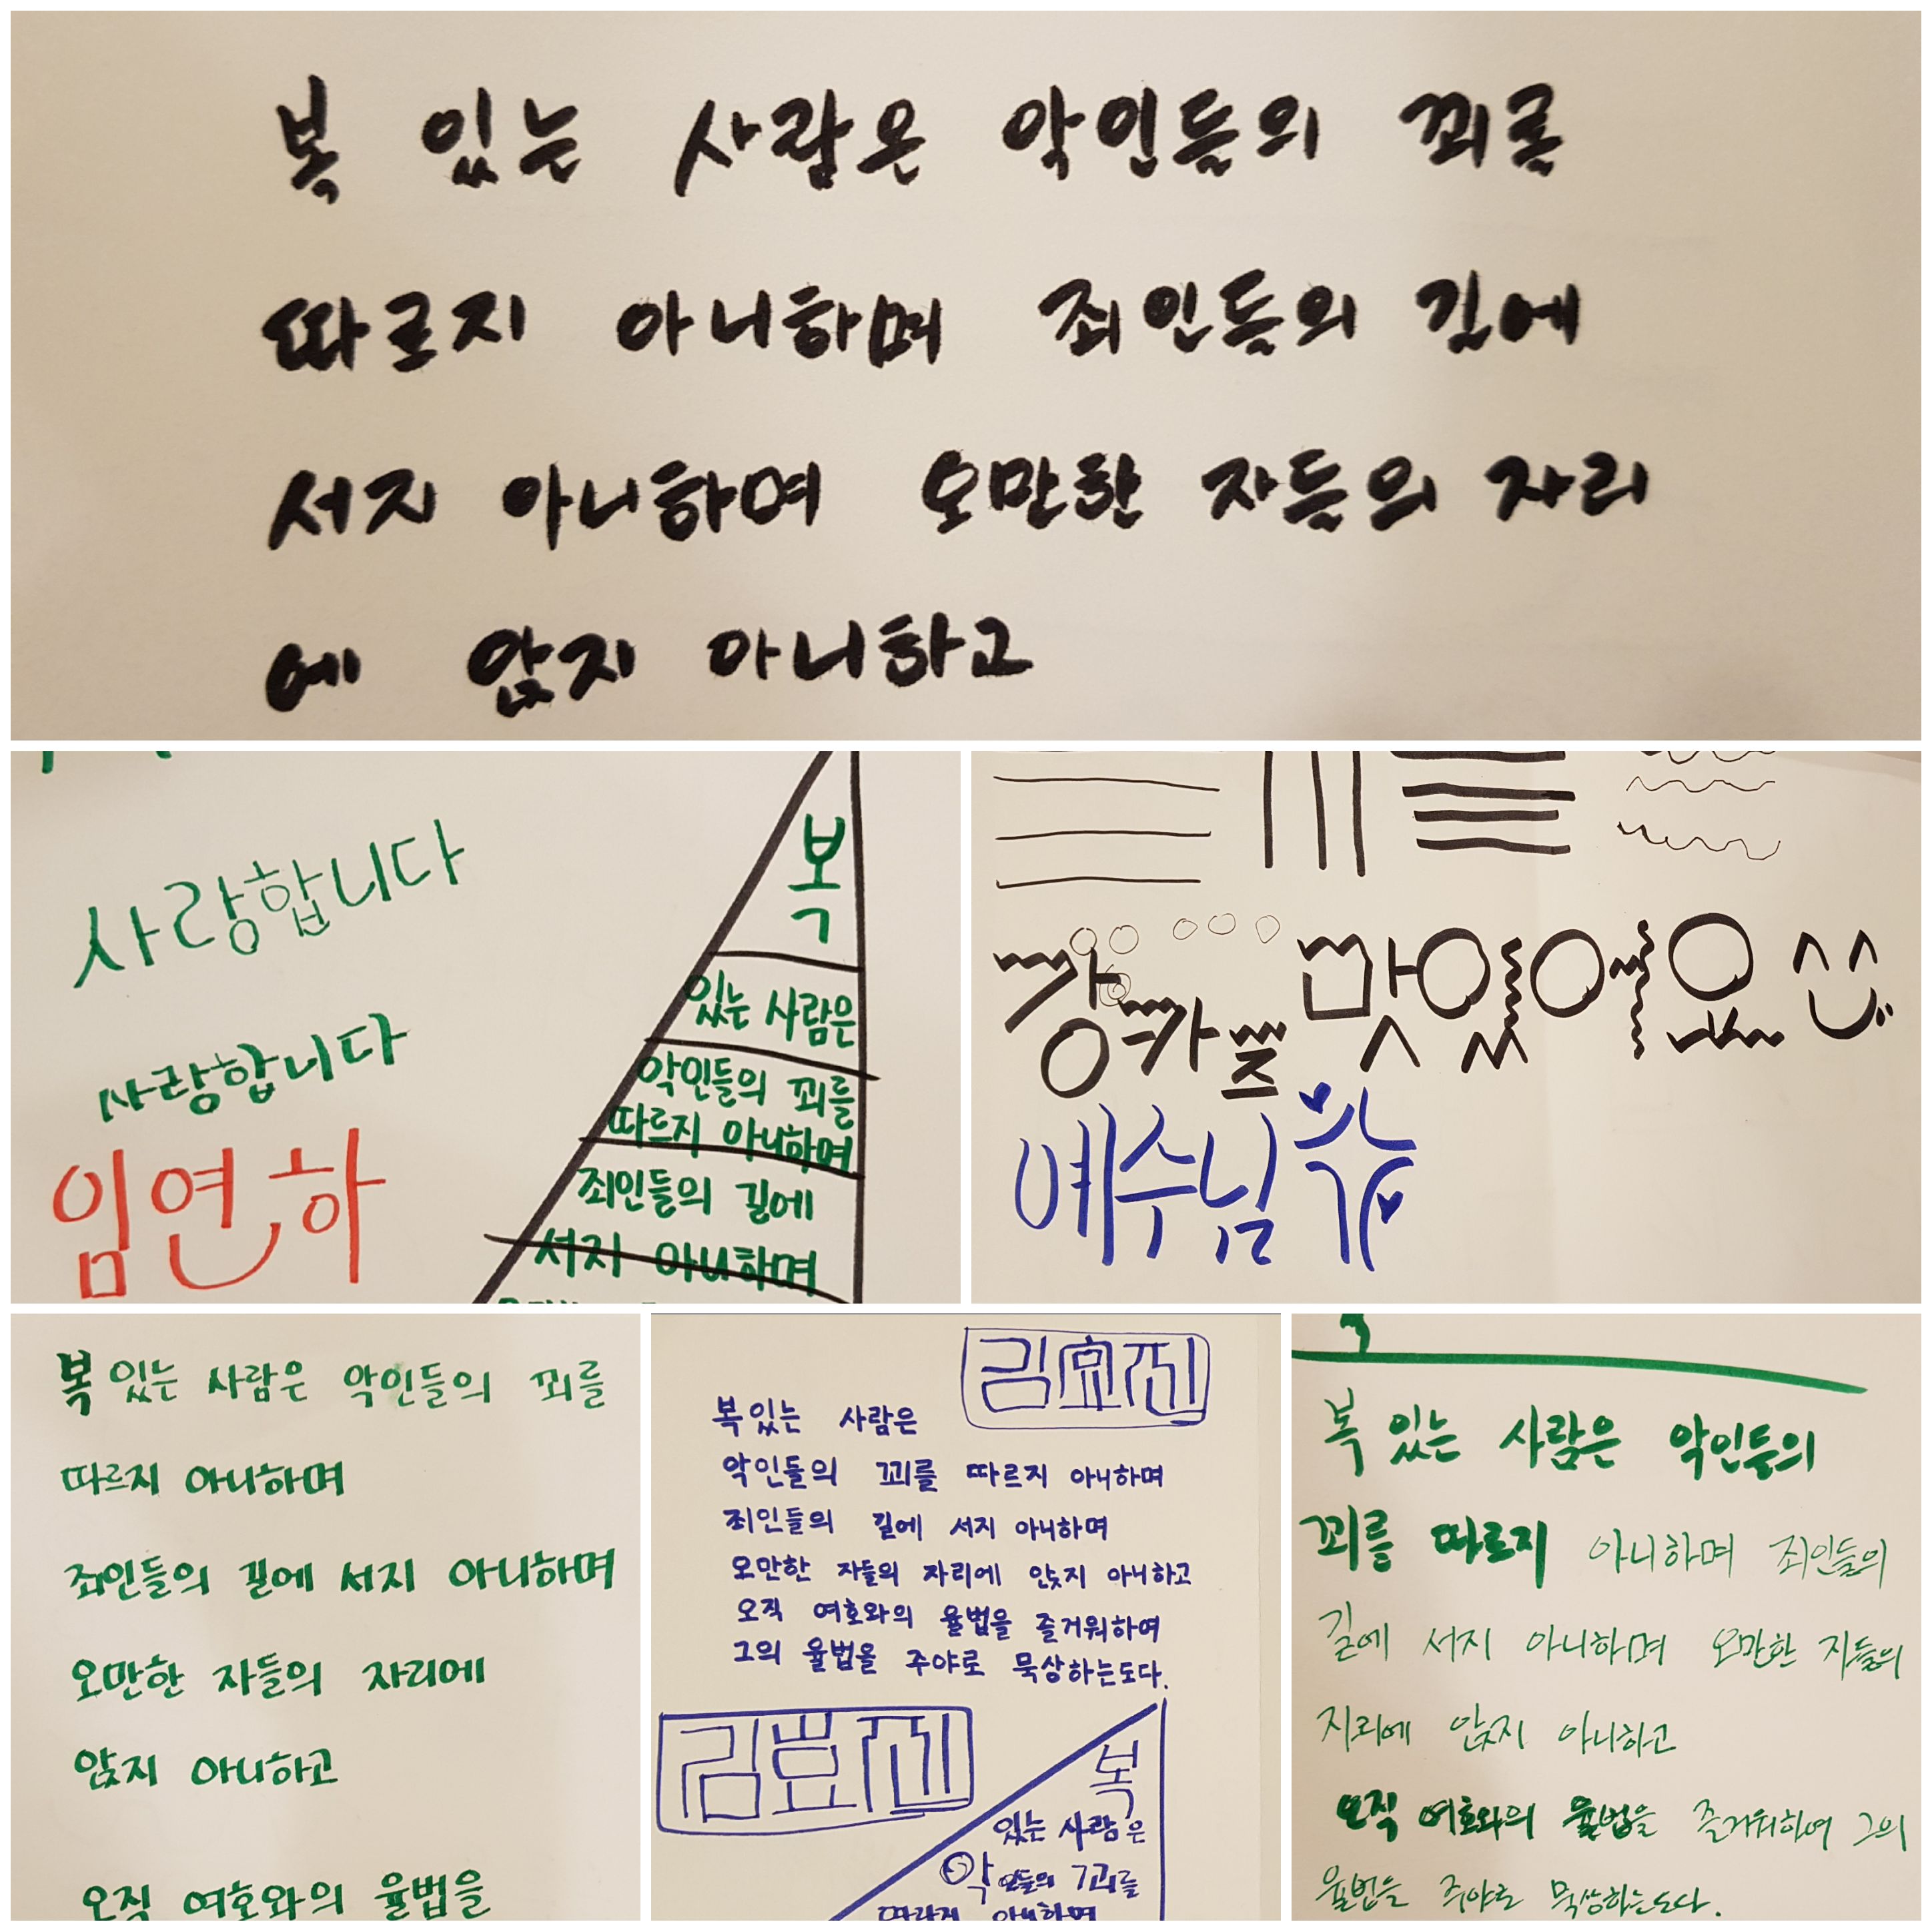 복 있는 사람은 악인들의 꾀를
따르지 아니하며 죄인들의 길에
서지 아니하며 오만한 자들의 자리
에 앉지 아니하고
사랑합니다
사랑합니다
임연하
복
있는 사람은
악인들의 꾀를
따르지 아니하며
죄인들의 길에
서지 아니하며
깡카쯔
맛있어요
예수님
복 있는 사람은 악인들의 꾀를
따르지 아니하며
죄인들의 길에 서지 아니하며
오만한 자들의 자리에
앉지 아니하고
오직 여호와의 율법을
복있는 사람은
악인들의 꾀를 따르지 아니하며
죄인들의 길에 서지 아니하며
오만한 자들의 자리에 앉지 아니하고
오직 여호와의 율법을 즐거워하여
그의 율법을 주야로 묵상하는도다.
복
있는 사람은
악인들의 꾀를
따르지 아니하며
복 있는 사람은 악인들의
꾀를 따르지 아니하며 죄인들의
길에 서지 아니하며 오만한 자들의
자리에 앉지 아니하고
오직 여호와의 율법을 즐거워하여 그의
율법을 주야로 묵상하는도다.